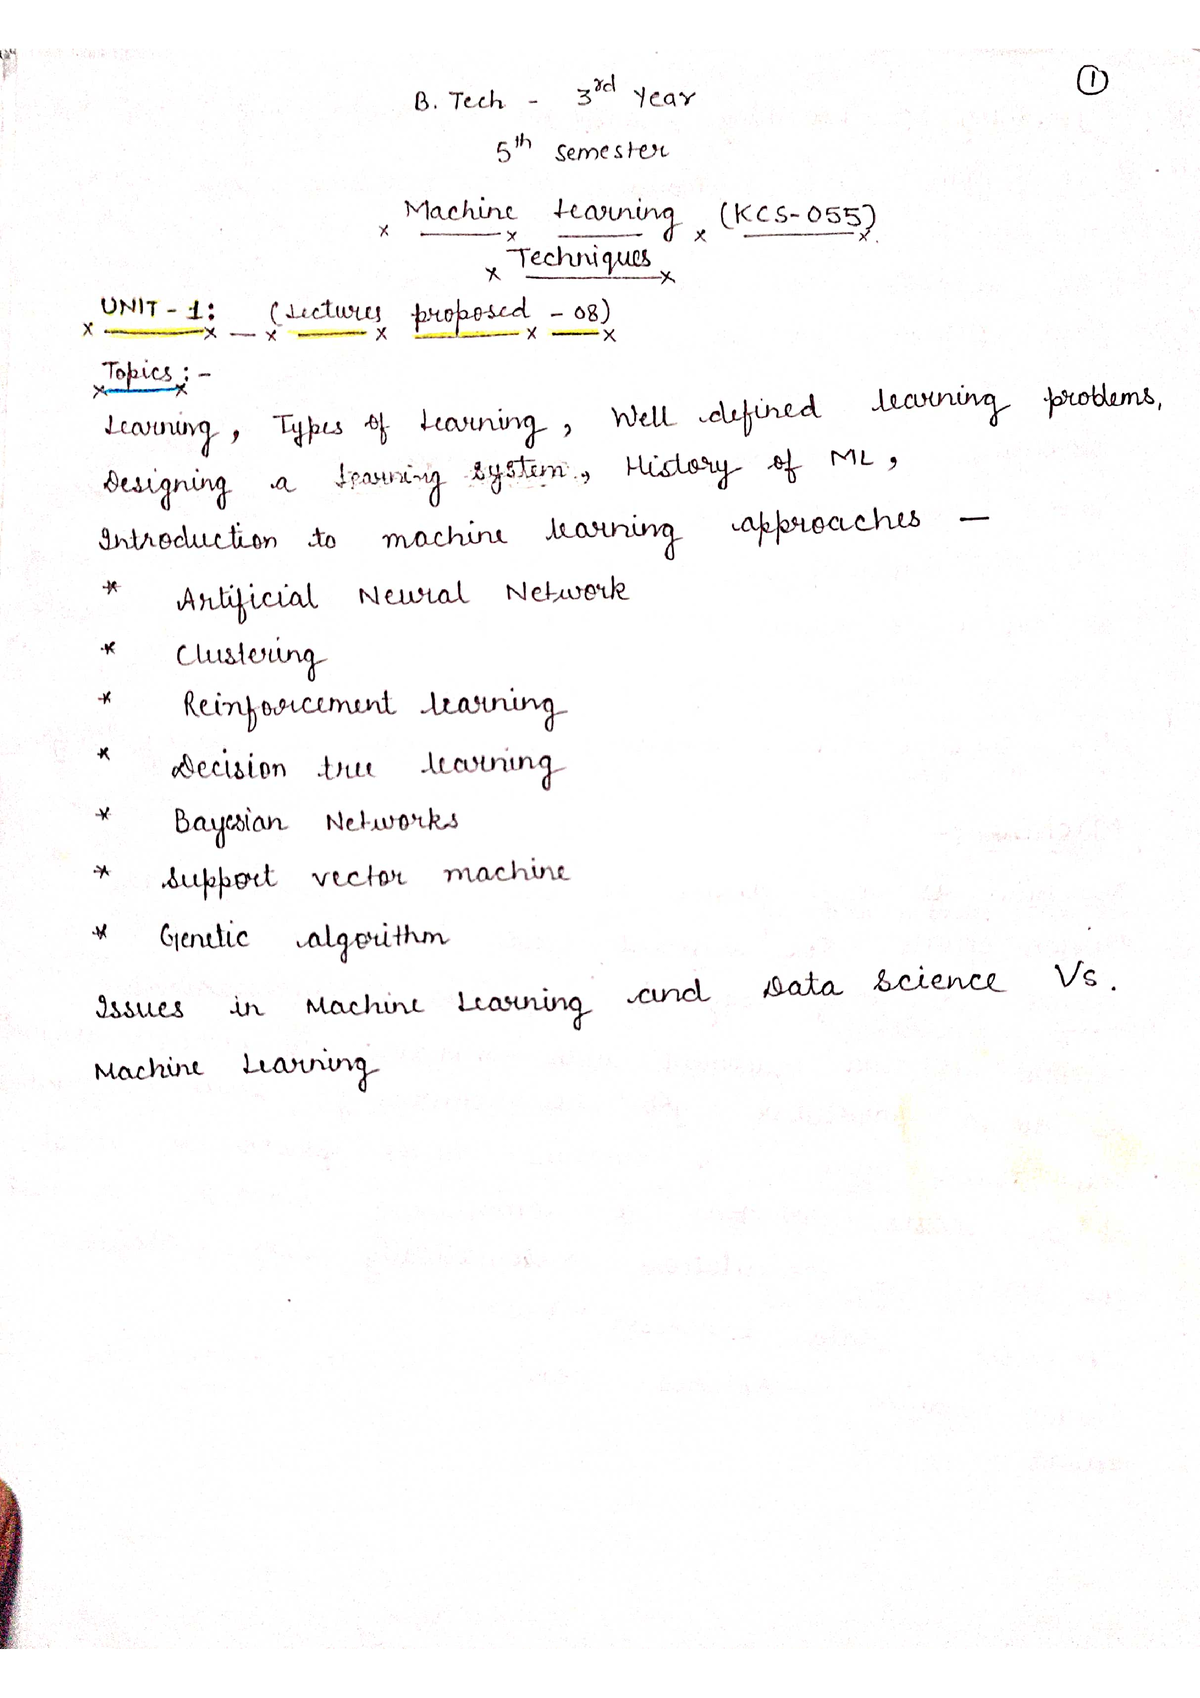 ①
B. Tech - 3rd Year
5th semester
Machine Learning (KCS-055)
Techniques
UNIT - 1: (Lectures proposed - 08)
Topics :-
Learning, Types of Learning, Well defined learning problems,
Designing a Learning system, History of ML,
Introduction to machine learning approaches —
* Artificial Neural Network
* Clustering
* Reinforcement learning
* Decision tree learning
* Bayesian Networks
* Support vector machine
* Genetic algorithm
Issues in Machine Learning and Data Science Vs.
Machine Learning